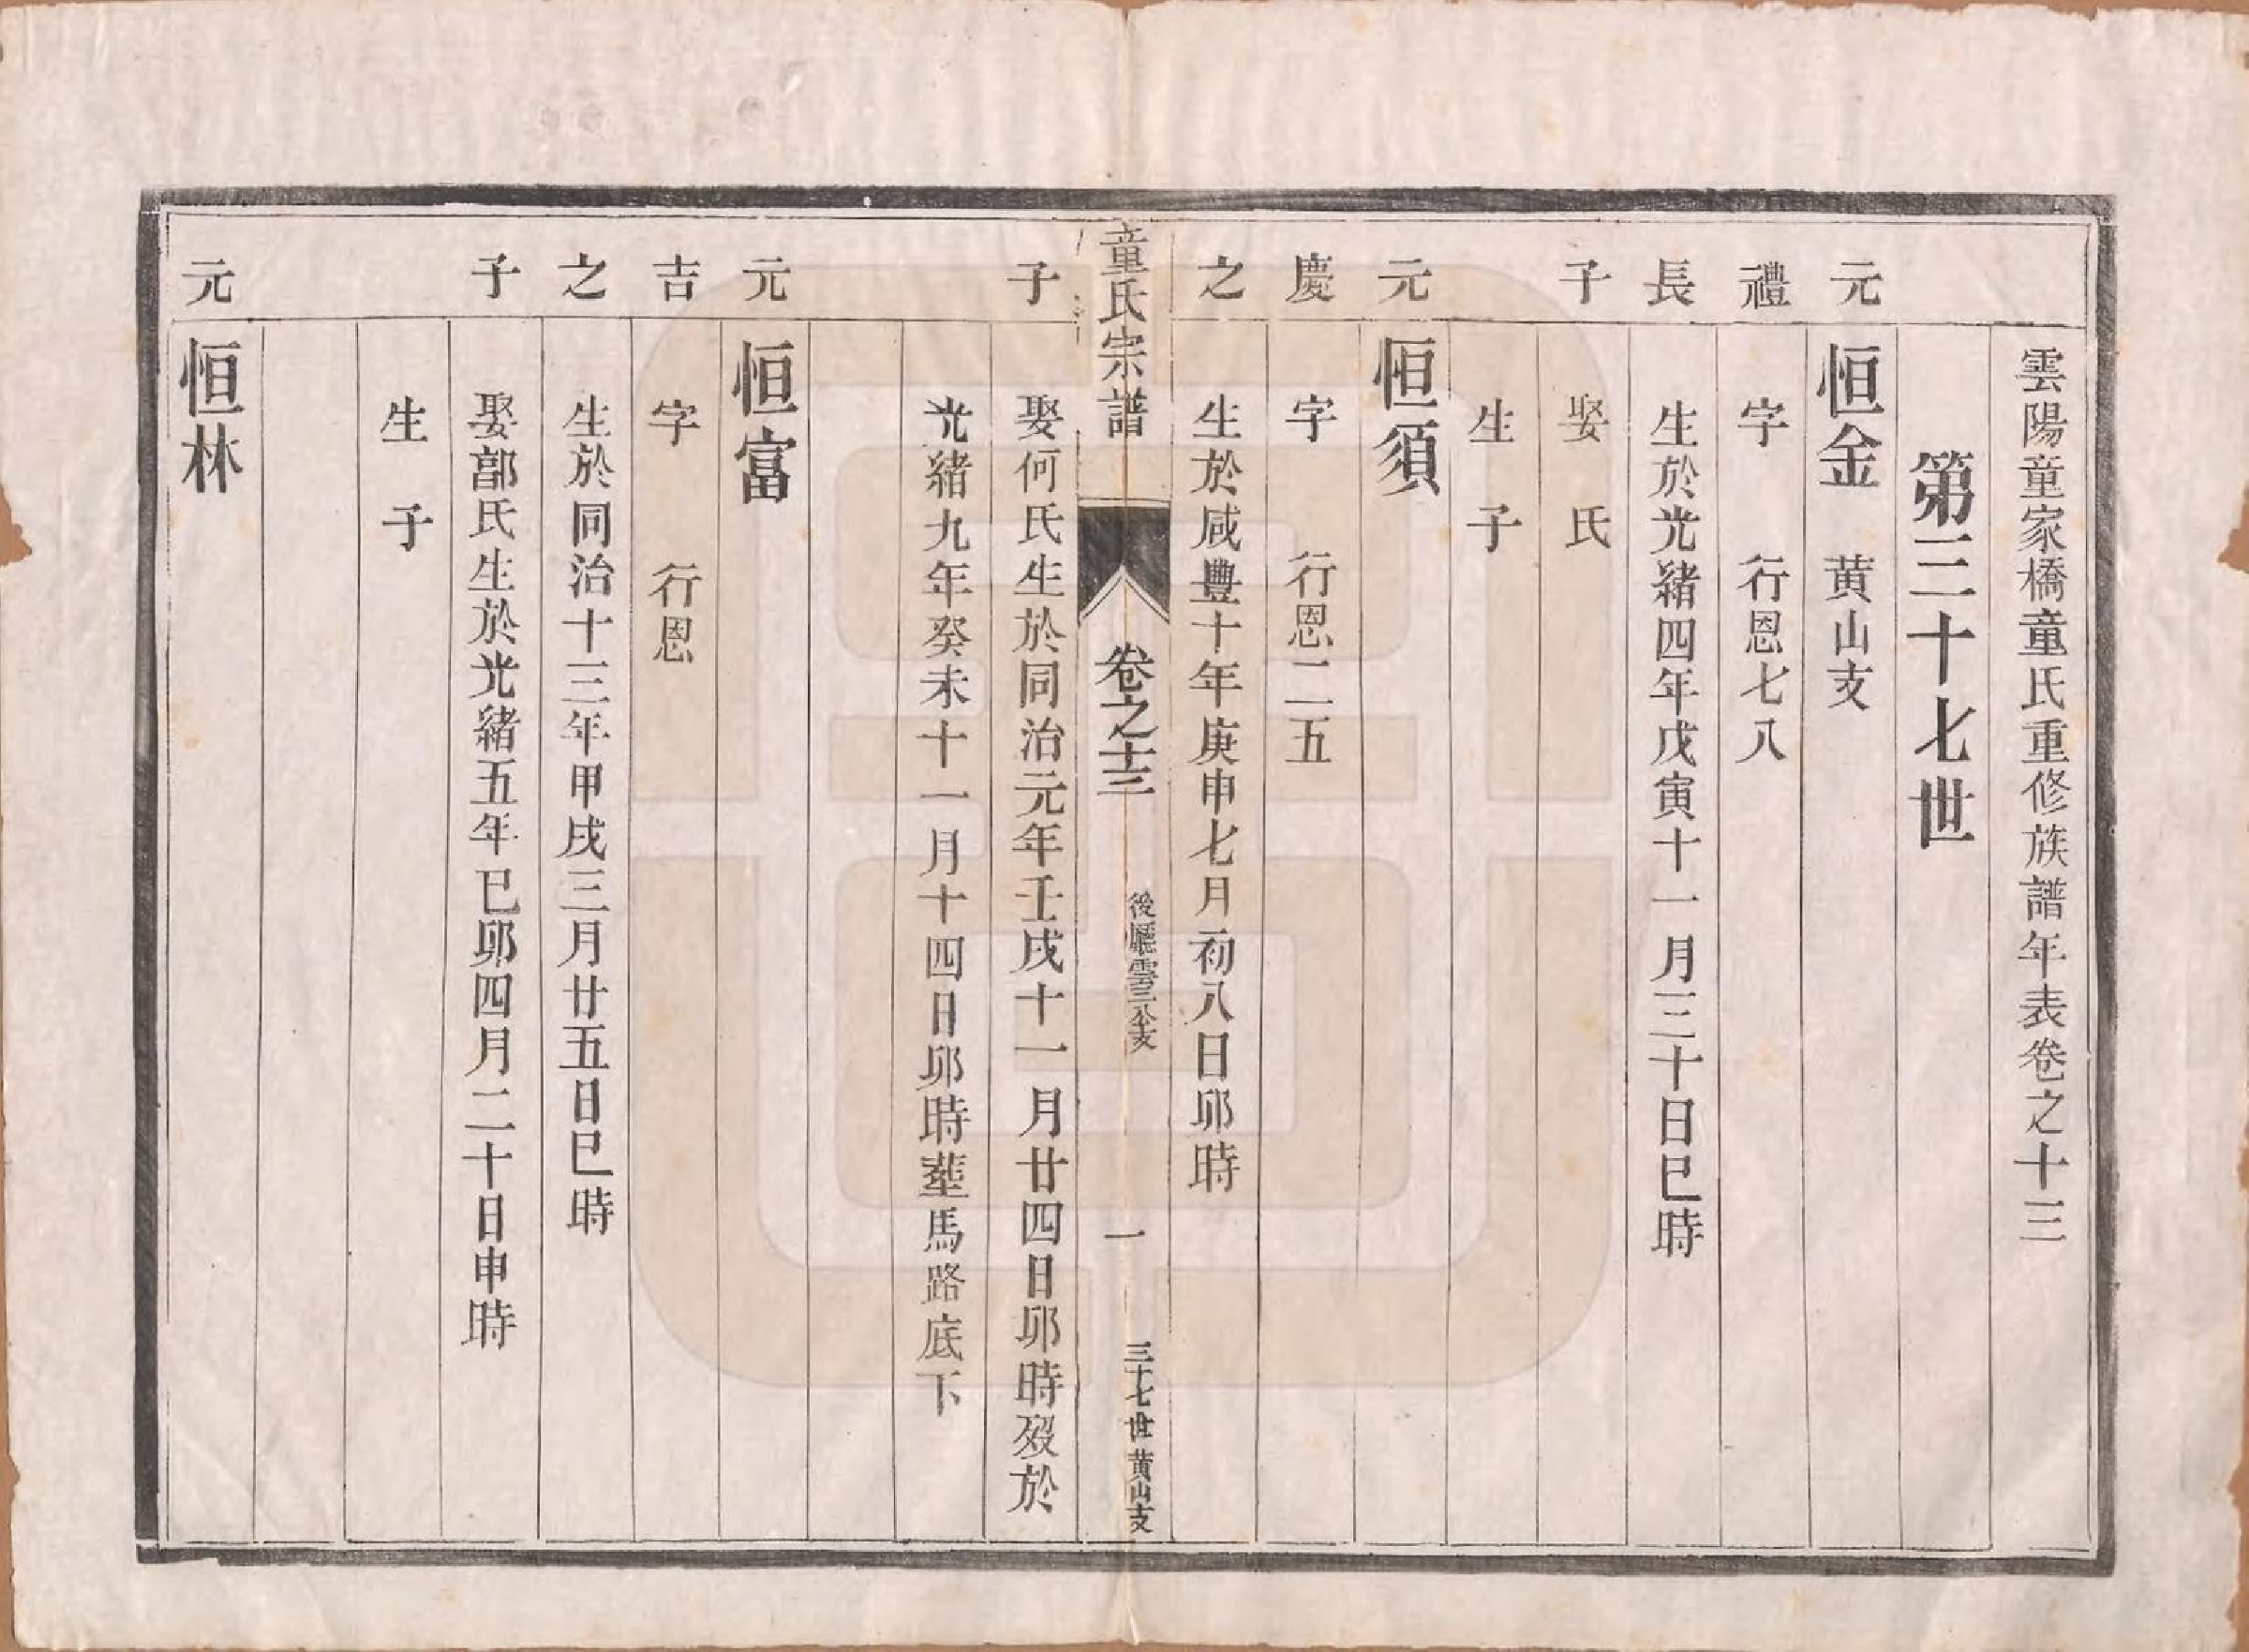 雲陽童家橋童氏重修族譜年表卷之十三
第三十七世
元 恒金 黄山支
禮 字 行恩七八
長 生於光緒四年戊寅十一月三十日巳時
子 娶 氏
生 子
元 恒須
慶 字 行恩二五
之 生於咸豐十年庚申七月初八日卯時
童氏宗譜 卷之十三 一 三十七世 黄山支
子 娶何氏生於同治元年壬戌十一月廿四日卯時歿於
光緒九年癸未十一月十四日卯時塟馬路底下
元 恒富
吉 字 行恩
之 生於同治十三年甲戌三月廿五日巳時
子 娶郜氏生於光緒五年巳卯四月二十日申時
生 子
元 恒林